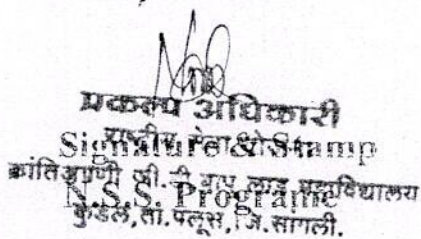 प्रकल्प अधिकारी
राष्ट्रीय सेवा योजना
Signature & Stamp
क्रांतिअग्रणी जी. डी. बापू लाड महाविद्यालय
N.S.S. Programe
कुंडल, ता. पलूस, जि. सांगली.